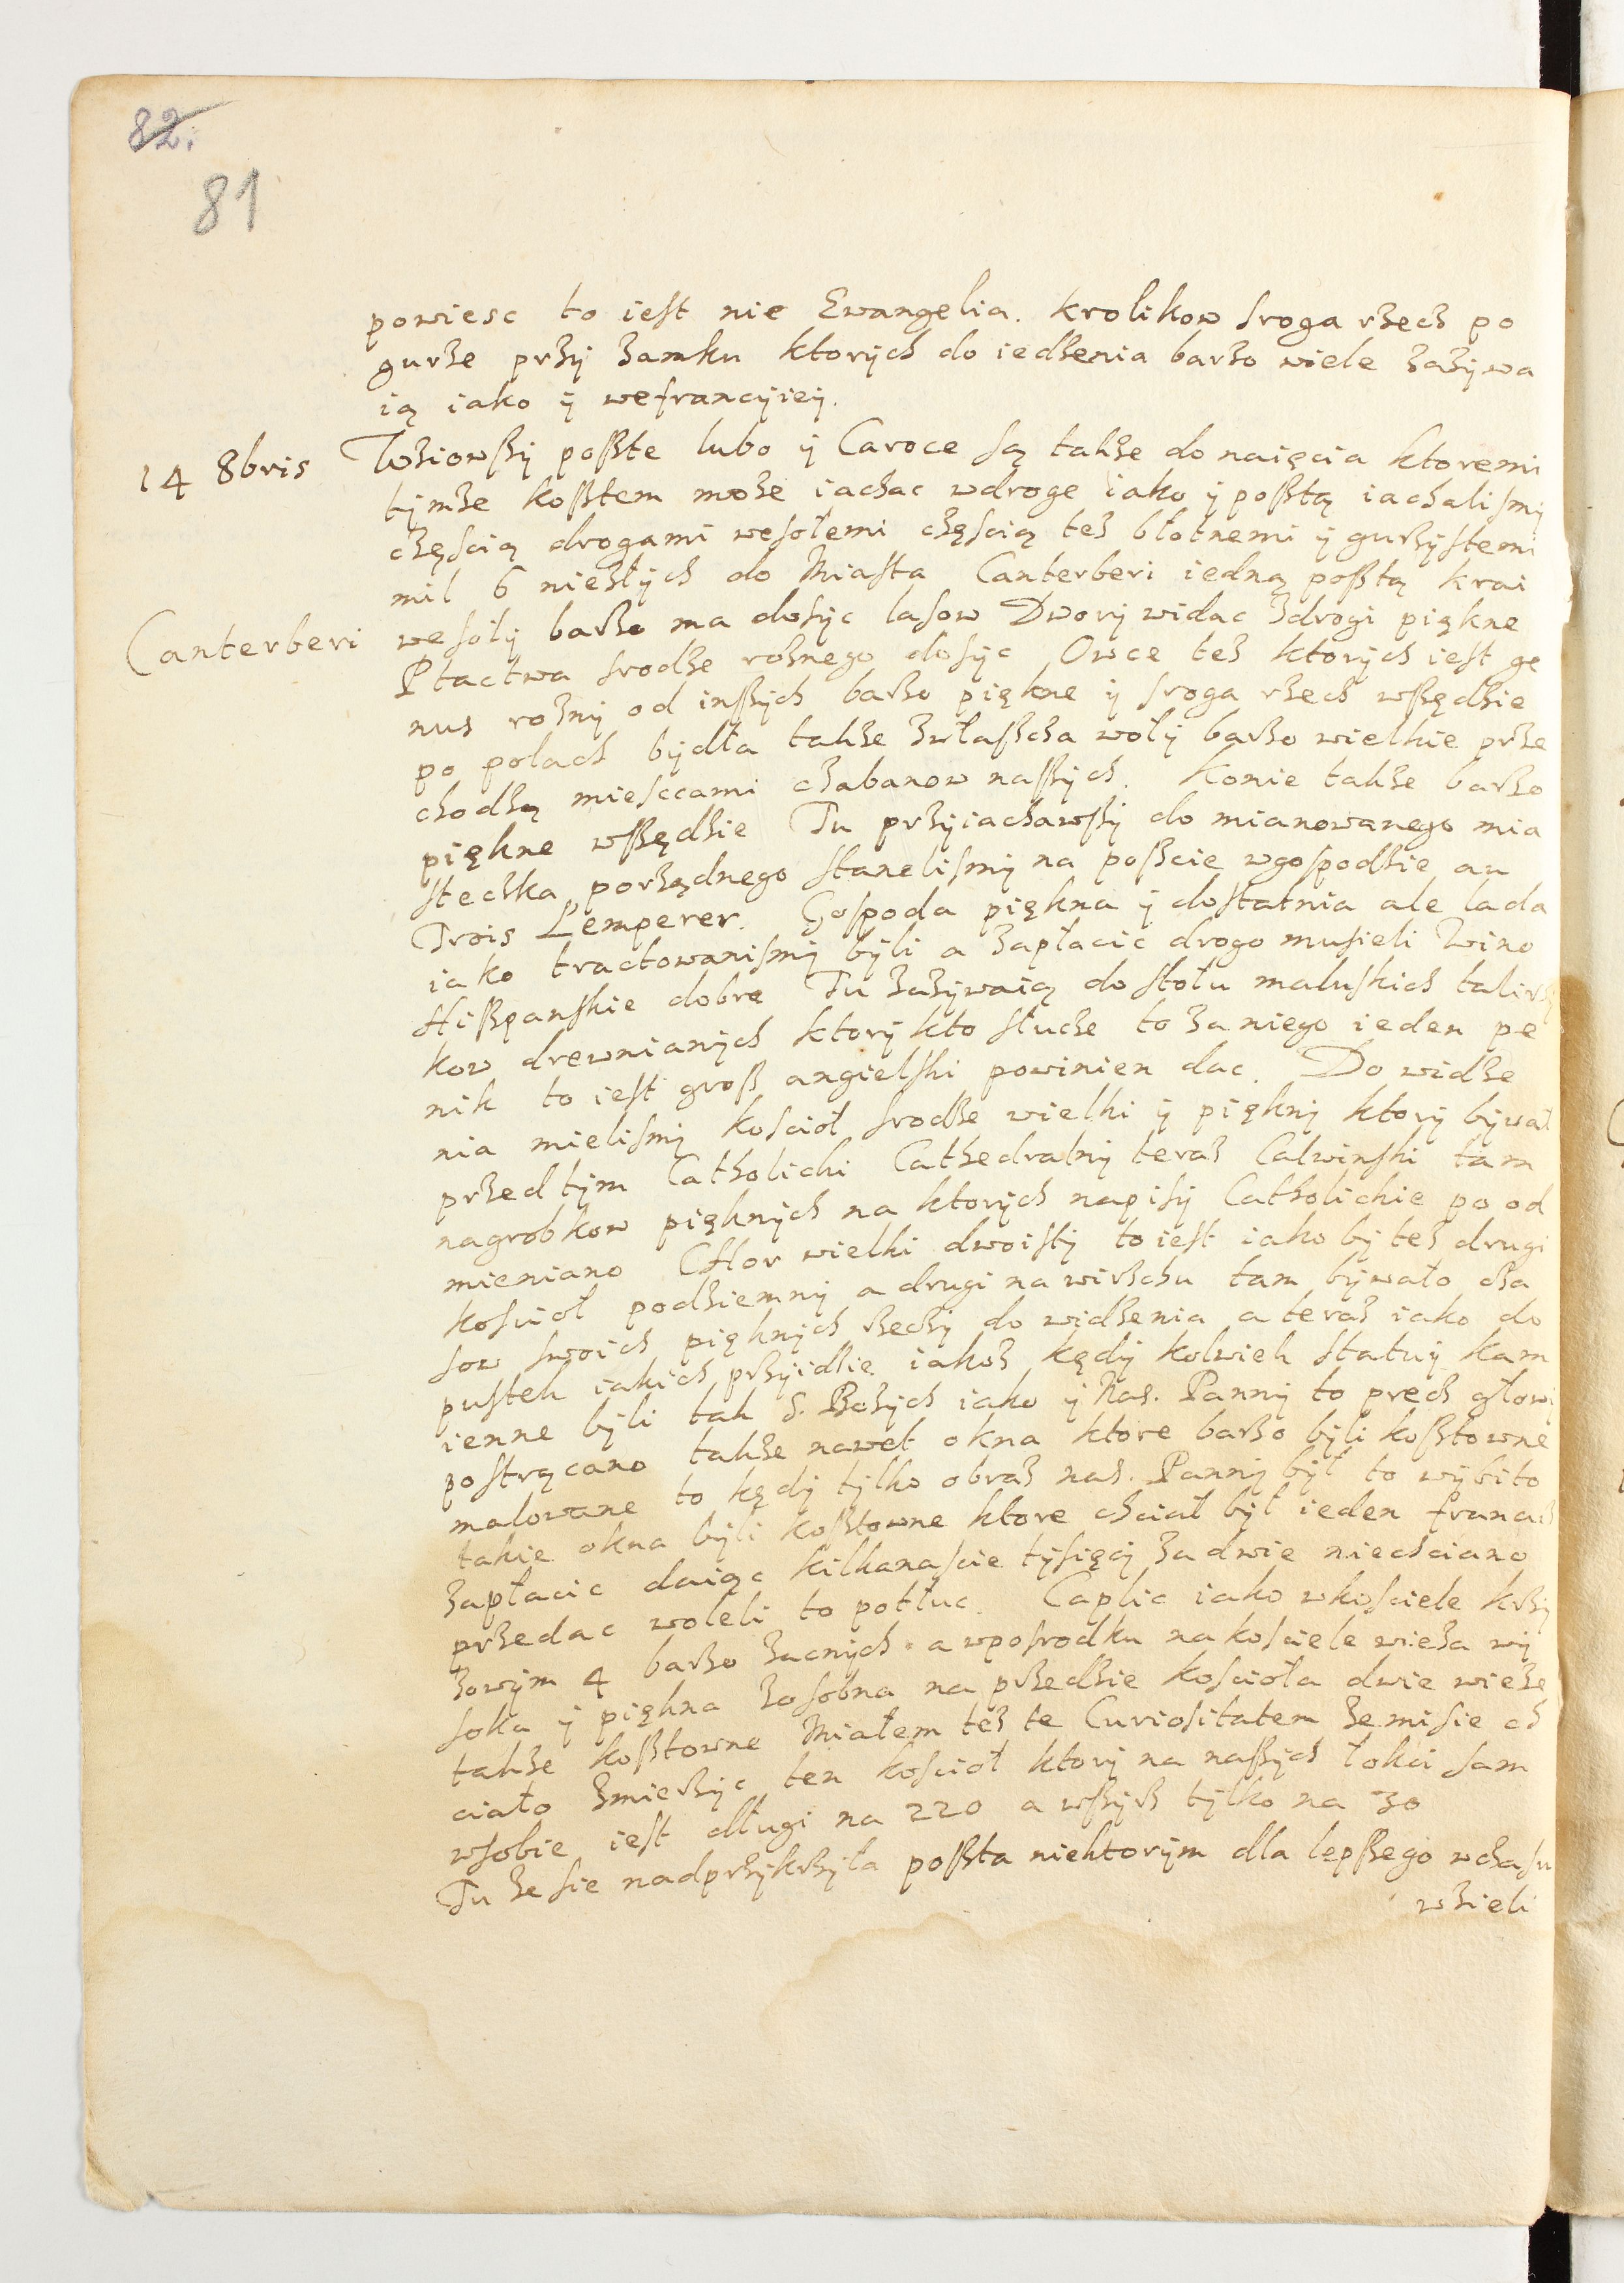 82.
81
powiesc to iest nie Ewangelia. krolikow sroga rzecz po
gurze przy zamku ktorych do iedzenia barzo wiele zazywa
ią iako y wefrancyiey.
14 8bris Wziowszy poszte lubo y Caroce są takze do naięcia ktoremi
tymze kosztem moze iachac wdroge iako y posztą iachalismy
częscią drogami wesołemi częscią tez błotnemi y gurzystemi
mil 6 niezłych do Miasta Canterberi iedną posztą krai
Canterberi wesoły barzo ma dosyc lasow Dwory widac zdrogi piękne
Ptactwa srodze roznego dosyc Owce tez ktorych iest ge
nus rozny od inszych barzo piękne y sroga rzecz wszędzie
po polach bydła takze zwłaszcza woły barzo wielkie prze
chodzą miesccami czabanow naszych. Konie takze barzo
piękne wszędzie Tu przyiachawszy do mianowanego mia
steczka porządnego stanelismy na poszcie wgospodzie au
Trois Lemperer. Gospoda piękna y dostatnia ale lada
iako tractowanismy byli a zapłacic drogo musieli Wino
Hiszpanskie dobre Tu zazywaią do stołu maluskich talirzy
kow drewnianych ktory kto stucze to zaniego ieden pe
nik to iest grosz angielski powinien dac. Do widze
nia mielismy kosciół srodze wielki y piękny ktory bywał
przed tym Catholicki Cathedralny teraz Calwinski tam
nagrobkow pięknych na ktorych napisy Catholickie po od
mieniano CHor wielki dwoisty to iest iako by tez drugi
kosciół podziemny a drugi na wirzchu tam bywało cza
sow swoich pięknych rzeczy do widzenia a teraz iako do
pustek iakich przyidzie iakoz kędy kolwiek statuy kam
ienne byli tak S. Bozych iako y Nas. Panny to precz głowy
postrącano takze nawet okna ktore barzo byli kosztowne
malowane to kędy tylko obraz nas. Panny był to wybito
takie okna byli kosztowne ktore chciał był ieden francuz
zapłacic daiąc kilkanascie tysięcy za dwie niechciano
przedac woleli to potłuc. Caplic iako wkosciele krzy
zowym 4 barzo zacnych a wposrodku na kosciele wieza wy
soka y piękna zosobna na przedzie kosciola dwie wieze
takze kosztowne Miałem tez te Curiositatem ze mi sie ch
ciało zmierzyc ten kosciół ktory na naszych łokci sam
wsobie iest długi na 220 a wszyrz tylko na 30
Tu ze sie nadprzykrzyła poszta niektorym dla lepszego wczasu
wzieli